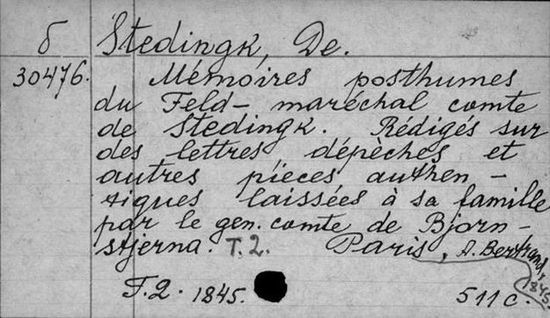 б Stedingk, De.
30476. Mémoires posthumes
du Feld-maréchal comte
de Stedingk. Rédigés sur
des lettres dépèches et
autres pièces authen-
tiques laissées à sa famille
par le gen. comte de Bjorn-
stjerna. T.2. Paris, A. Bertrand,
1845.
T.2. 1845. 511 c.